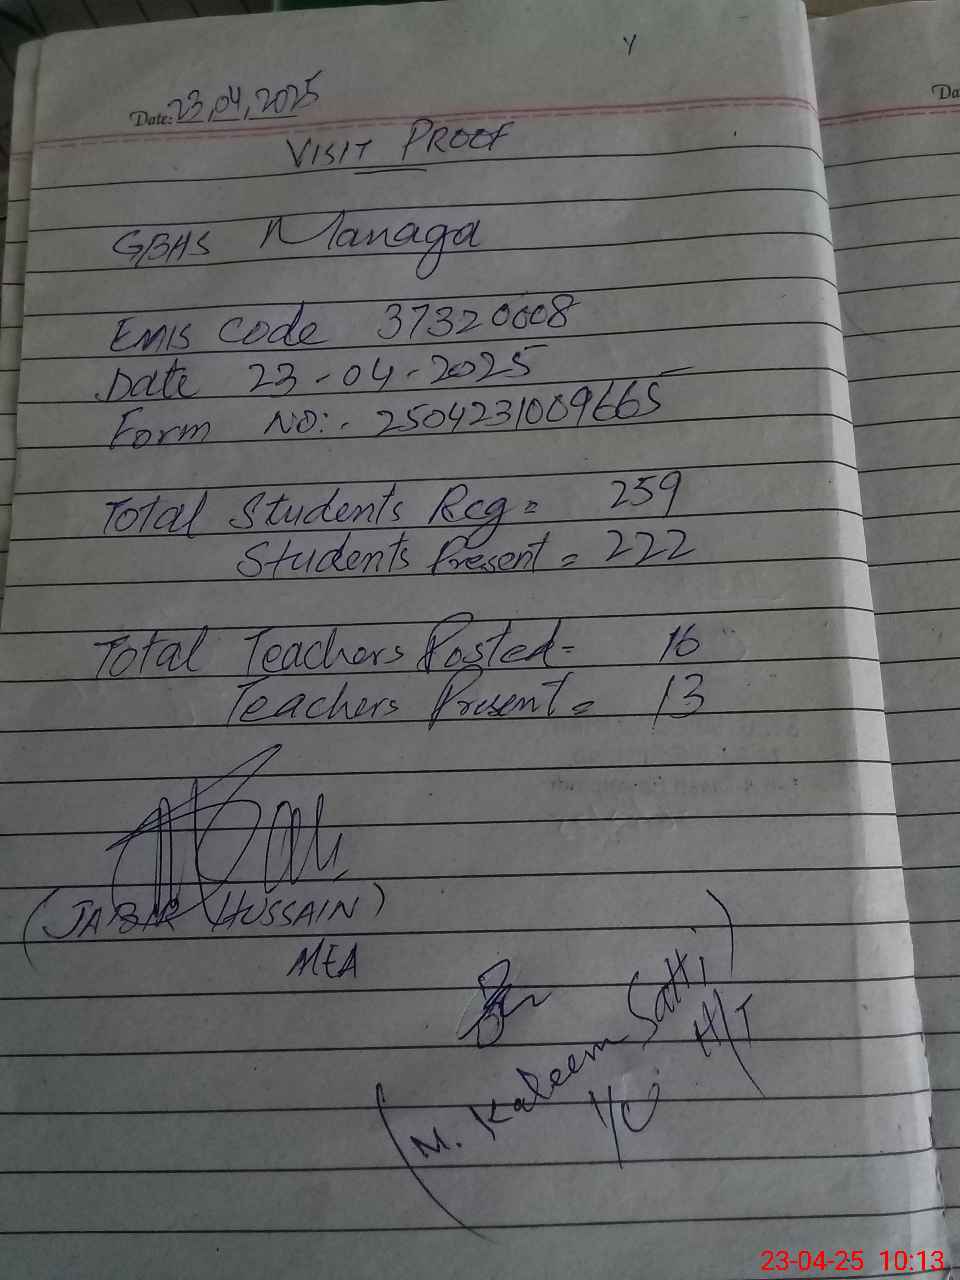 Y
Date: 23,04,2025
Da
VISIT PROOF
GBHS Managa
EMIS Code 37320008
Date 23-04-2025
Form No:- 2504231009665
Total Students Reg = 259
Students Present = 222
Total Teachers Posted = 16
Teachers Present = 13
(JABIR HUSSAIN)
MEA
(M. Kaleem Satti)
I/C H/T
23-04-25 10:13